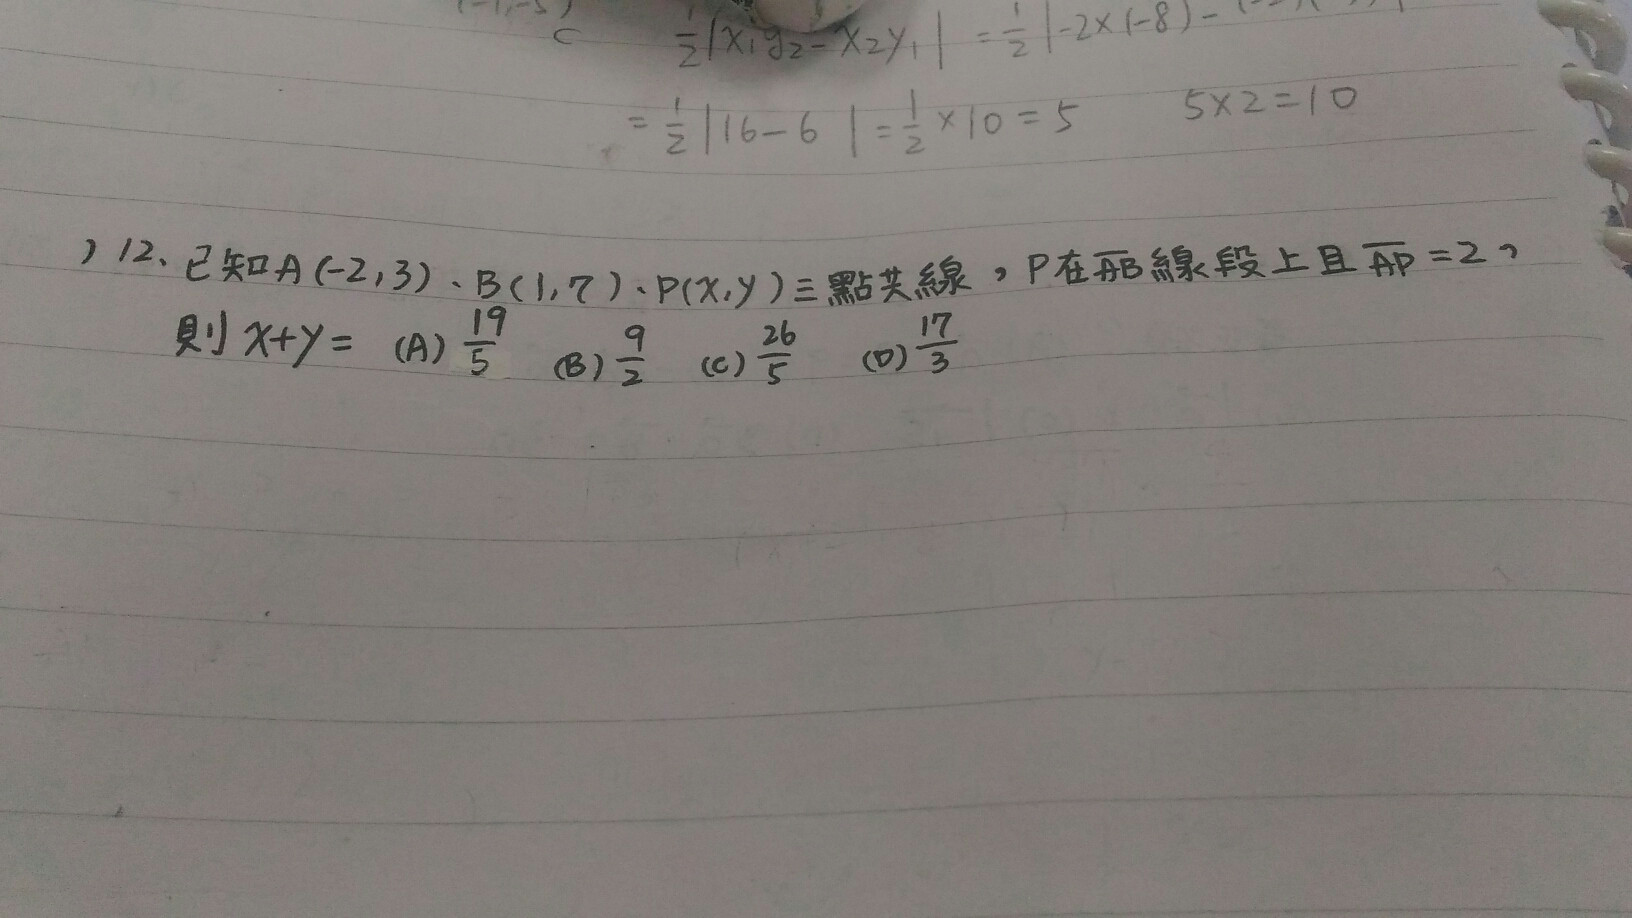 C ½|x₁y₂-x₂y₁| = ½|-2×(-8)-
= ½|16-6| = ½×10=5 5×2=10
) 12、已知A(-2,3)、B(1,7)、P(x,y)三點共線,P在AB線段上且AP=2,
則 x+y= (A) 19/5 (B) 9/2 (C) 26/5 (D) 17/3